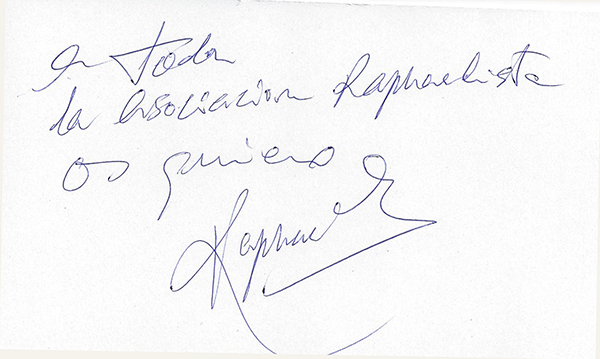 a toda
la Asociacion Raphaelista
os quiero
Raphael